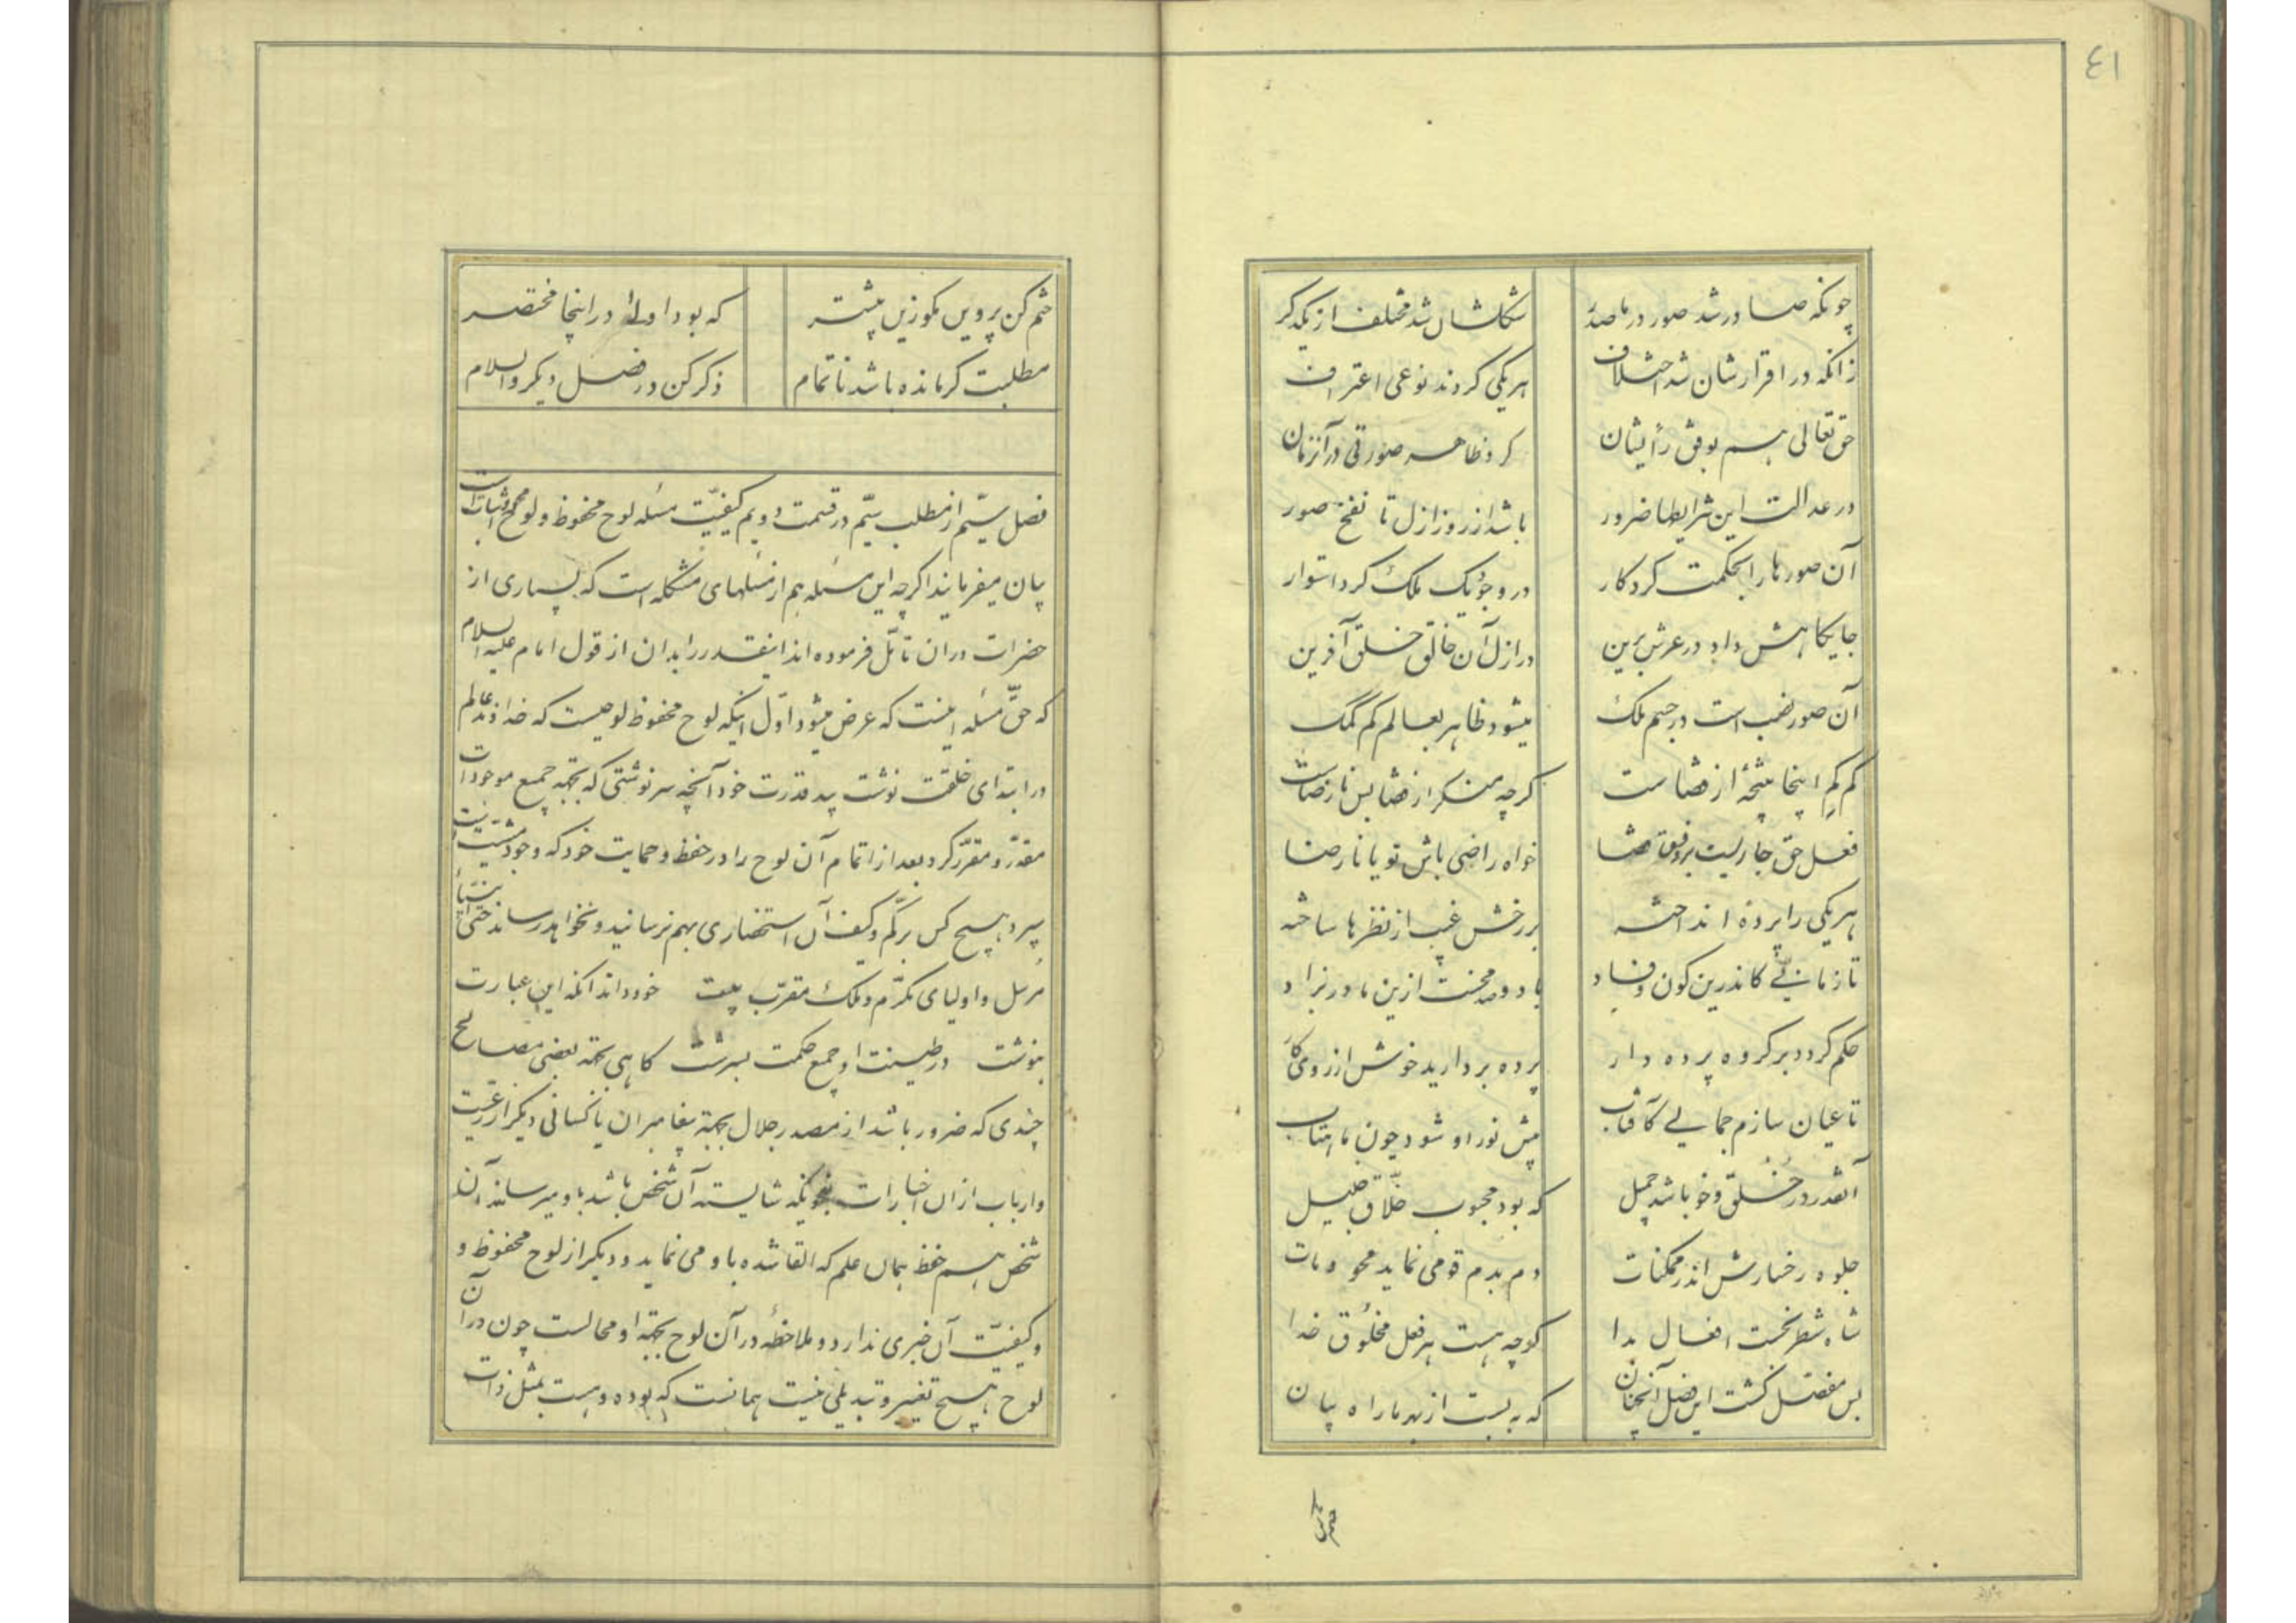 ٤١
چونکه صادر شد صور در ماصدر
شکلشان شد مختلف از یکدگر
زانکه در اقرارشان شد اختلاف
هر یکی کردند نوعی اعتراف
حق تعالی هم بوفق رأیشان
کرد ظاهر صورتی در آنزمان
در عدالت این شرایطها ضرور
باشد از روز ازل تا نفخ صور
آن صورها را بحکمت کردگار
در وجود یک ملک کرد استوار
جایگاهش داد در عرش برین
در ازل آن خالق خلق آفرین
آن صور نصب است در جسم ملک
میشود ظاهر بعالم کم کمک
کم کم اینجا نتیجهٔ از قضاست
گرچه منکر از قضا بس نارضاست
فعل حق جاریست بر وفق قضا
خواه راضی باش تو یا نارضا
هر یکی را پرده انداخته
بر رخش غیب از نظرها ساخته
تا زمانی کاندرین کون و فساد
با دو صد محنت ازین مادر نزاد
حکم گردد بر گروه پرده دار
پرده بردارید خوش از روی کار
تا عیان سازم جمالی کآفتاب
پیش نور او شود چون ماهتاب
آنقدر در خلق و خو باشد جمیل
که بود محبوب خلاق جلیل
جلوه رخسارش اندر ممکنات
دم بدم قومی نماید محو و مات
شاه شطرنجست افعال خدا
گوچه هست هر فعل مخلوق خدا
بس مفصل گشت این فصل آنچنان
که به بست از بهر ما راه بیان
ختم کن
ختم کن پروین مگو زین بیشتر
که بود اولی در اینجا مختصر
مطلبت گر مانده باشد ناتمام
ذکر کن در فصل دیگر والسلام
فصل سیّم از مطلب سیّم در قسمت دویم کیفیّت مسئله لوح محفوظ و لوح محو اثبات است
بیان میفرماید اگرچه این مسئله هم از مسئلهای مشکله است که بسیاری از
حضرات در ان تأمّل فرموده اند اینقدر را بدان از قول امام علیه السلام
که حقّ مسئله اینست که عرض میشود اوّل اینکه لوح محفوظ لوحیست که خداوند عالم
در ابتدای خلقت نوشت بید قدرت خود آنچه سرنوشتی که بجهة جمیع موجودات
مقدّر و مقرّر کرد بعد از اتمام آن لوح را در حفظ و حمایت خود که وجود مشیّت است
سپرد هیچ کس بر کم و کیف آن استحضاری بهم نرسانید و نخواهد رساند حتی انبیآء
مرسل و اولیای مکرّم و ملک مقرّب بیت خود داند آنکه این عبارت
بنوشت در طینت او جمع حکمت بسرشت گاهی بجهة بعضی مصالح
چندی که ضرور باشد از مصدر جلال بجهة پیغامبران یا کسانی دیگر از رعیّت
و ارباب از ان اخبارات بنحویکه شایسته آن شخص باشد باو میرساند آن
شخص هم حفظ همان علم که القا شده باو می نماید و دیگر از لوح محفوظ و
و کیفیّت آن خبری ندارد و ملاحظه در آن لوح بجهة او محالست چون در آن
لوح هیچ تغییر و تبدیلی نیست همانست که بوده و هست بمثل ذات